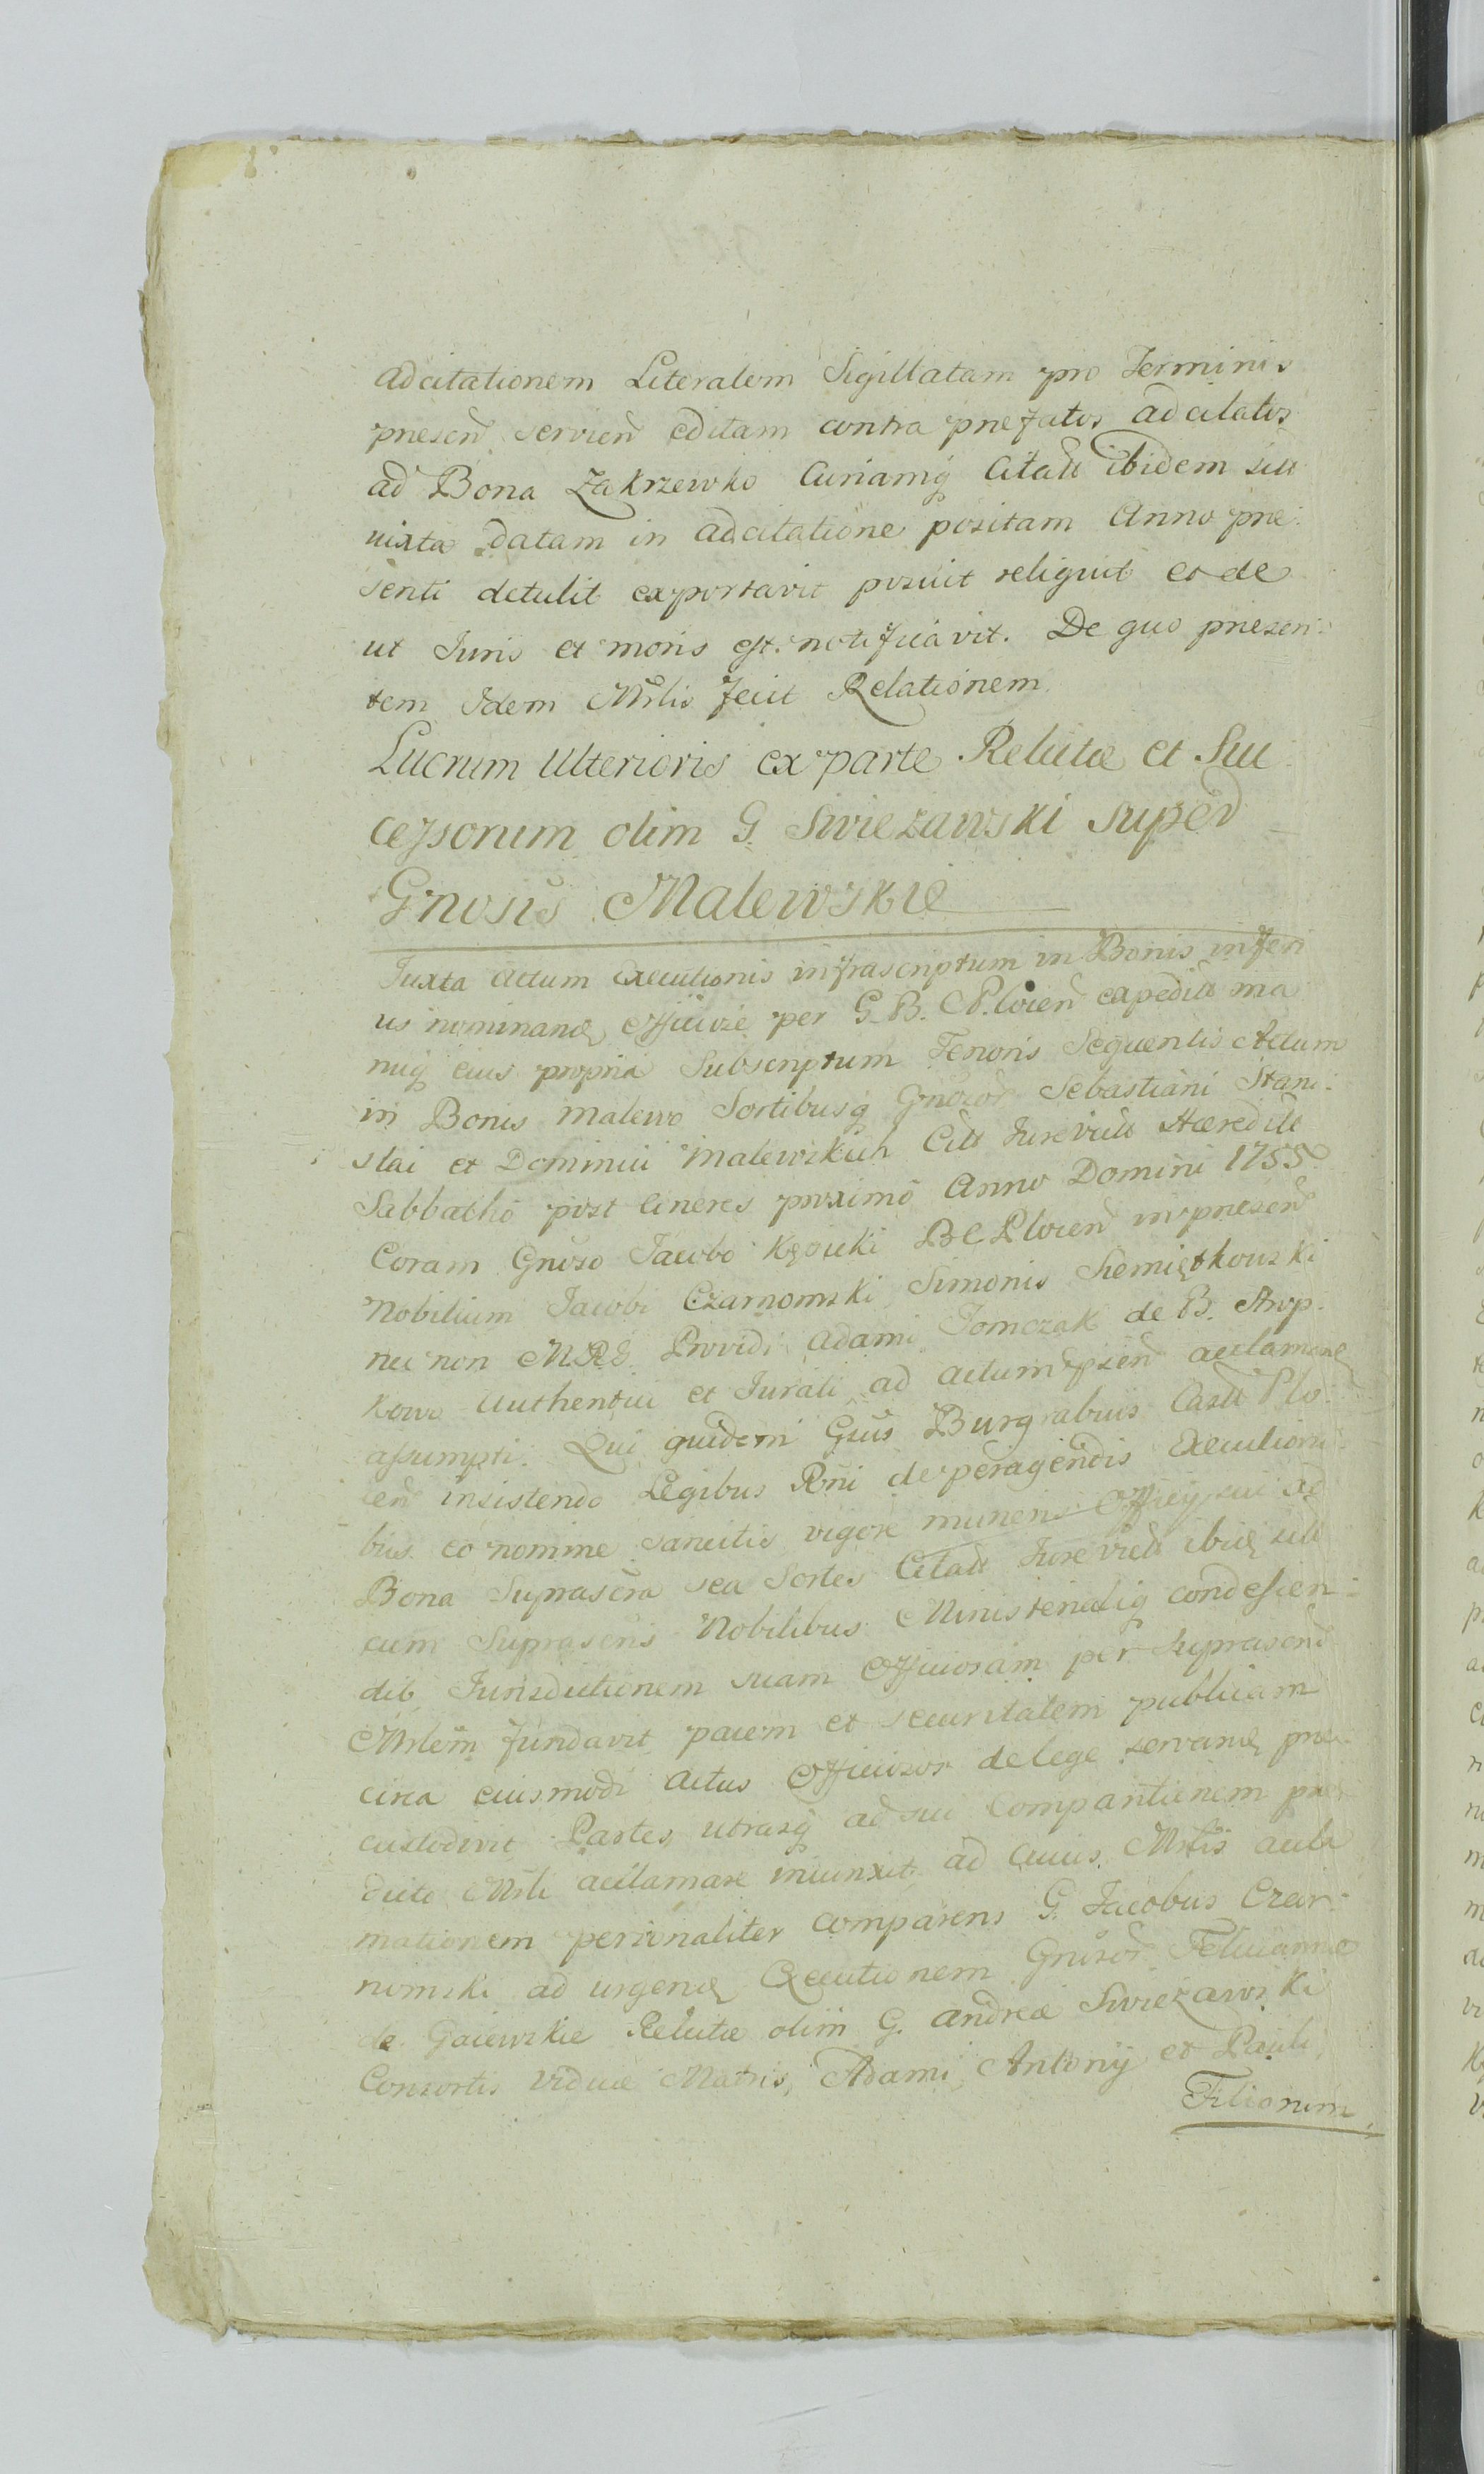 adcitationem Literalem Sigillatam pro Terminis
præsen servien editam contra præfatos adcitatos
ad Bona Zakrzewko Curiamq Citatt ibidem sitt
iuxta datam in adcitatione positam Anno præ:
senti detulit exportavit posuit reliquit et de
ut Iuris et moris est notificavit. De quo præsen:
tem Idem Mnlis fecit Relationem
Lucrum Ulterioris ex parte Relictæ et Suc:
cessorum olim G. Swiezawski super
Gnosis Malewskie
Iuxta actum Executionis infrascriptum in Bonis inferi
us nominan Officiose per G. B. C. Plocien expeditt ma
nuq eius propria Subscriptum Tenoris Sequentis Actum
in Bonis Malewo Sortibusq Gnosor Sebastiani Stani:
slai et Dominici Malewskich Citt Iurevictt Hæreditt
Sabbatho post Cineres proximo Anno Domini 1755
Coram Gnoso Iacobo Kęsicki B C Plocien in præsen
Nobilium Iacobi Czarnomski Simonis Siemiętkowski
nec non M R G Providi Adami Tomczak de B.
kowo Authentici et Iurati ad actum psen acclaman
assumpti. Qui quidem Gsus Burgrabius Castr Plo:
cen insistendo Legibus Rni de peragendis Execution:
bus eo nomine sancitis vigore muneris Officij sui ad
Bona Suprascra sea Sortes Citatt Iurevictt ibid sitt
cum Suprascris Nobilibus Ministerialiq condescen:
dit Iurisdictionem suam Officiosam per Suprascrm
Mnlem fundavit pacem et securitatem publicam
circa eiusmodi actus Officiosos de lege servan præ:
custodivit Partes utrasq ad sui Comparitionem præ:
dicto Mnli acclamare iniunxit ad cuius Mnlis accla
mationem personaliter comparens G. Iacobus Czar:
nomski ad urgen Executionem Gnosor Feliciannæ
de Gaiewskie Relictæ olim G. Andreæ Swiezawski
Consortis Viduæ Matris, Adami, Antonij et Pauli
Filiorum